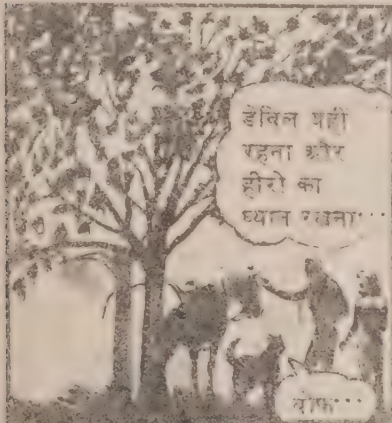 डेविल यहीं
रहना और
हीरो का
ध्यान रखना...
वोफ...